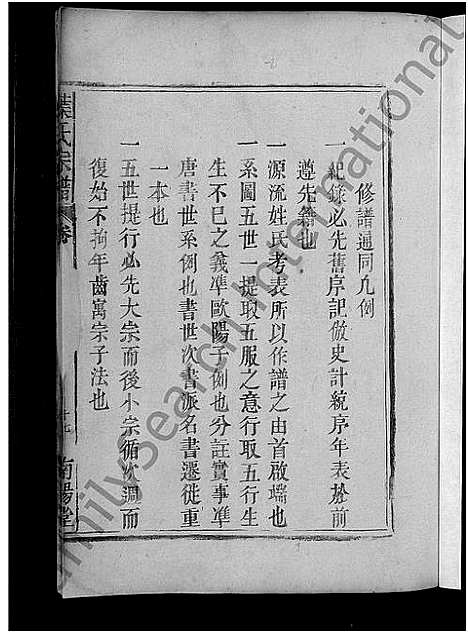 修譜通同凡例
一紀錄必先舊序記倣史計統序年表於前
遵先緒也
一源流姓氏考表所以作譜之由首啟端也
一系圖五世一提取五服之意行取五行生
生不已之義準歐陽子例也分註實事準
唐書世系例也書世次書派名書遷徙重
一本也
一五世提行必先大宗而後小宗循次週而
復始不拘年齒寓宗子法也
葉氏宗譜 卷
南陽堂
FamilySearch International